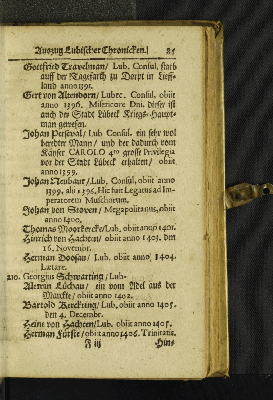 Auszug Lubischer Chronicken. 85
Gottfried Travelman/ Lub. Consul, starb
auff der Tagefarth zu Dorpt in Lieff-
land anno 1391.
Girt von Altendorn/ Lubec. Consul, obiit
anno 1396. Misericore Dni. dieser ist
auch der Stadt Lübeck Kriegs-Haupt-
man gewesen.
Johan Perseval/ Lub Consul. ein sehr wol
beredter Mann/ und der dadurch vom
Käyser CAROLO 4to grosse Privilegia
vor der Stadt Lübeck erhalten/ obiit
anno 1399.
Johan Neubaur/ Lub. Consul, obiit anno
1399. alii 1396. Hic fuit Legatus ad Im-
peratorem Muschorum.
Johan von Stoven/ Megapolitanus, obiit
anno 1400.
Thomas Moorkercke/ Lub. obiit anno 1401.
Hinrich von Hachten/ obiit anno 1403. den
16. Novembr.
Herman Doosau/ Lub. obiit anno 1404.
Lætare.
210. Georgius Schwarting/ Lub.
Alerun Lüchau/ ein vom Adel aus der
Marckte/ obiit anno 1402.
Bartold Kerckring/ Lub. obiit anno 1405.
den 4. Decembr.
Heine von Hachten/ Lub. obiit anno 1405.
Herman Fürste/ obiit anno 1406. Trinitatis.
F iij Hin-